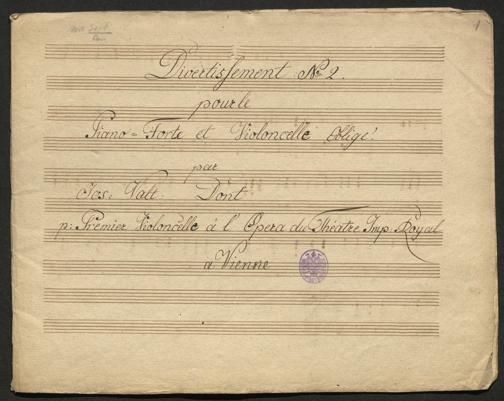 1
Divertissement No 2.
pour le
Piano=Forte et Violoncelle obligé.
par
Jos: Val: Dont
p: Premier Violoncelle à l'Opera du Théatre Imp. Royal
a Vienne